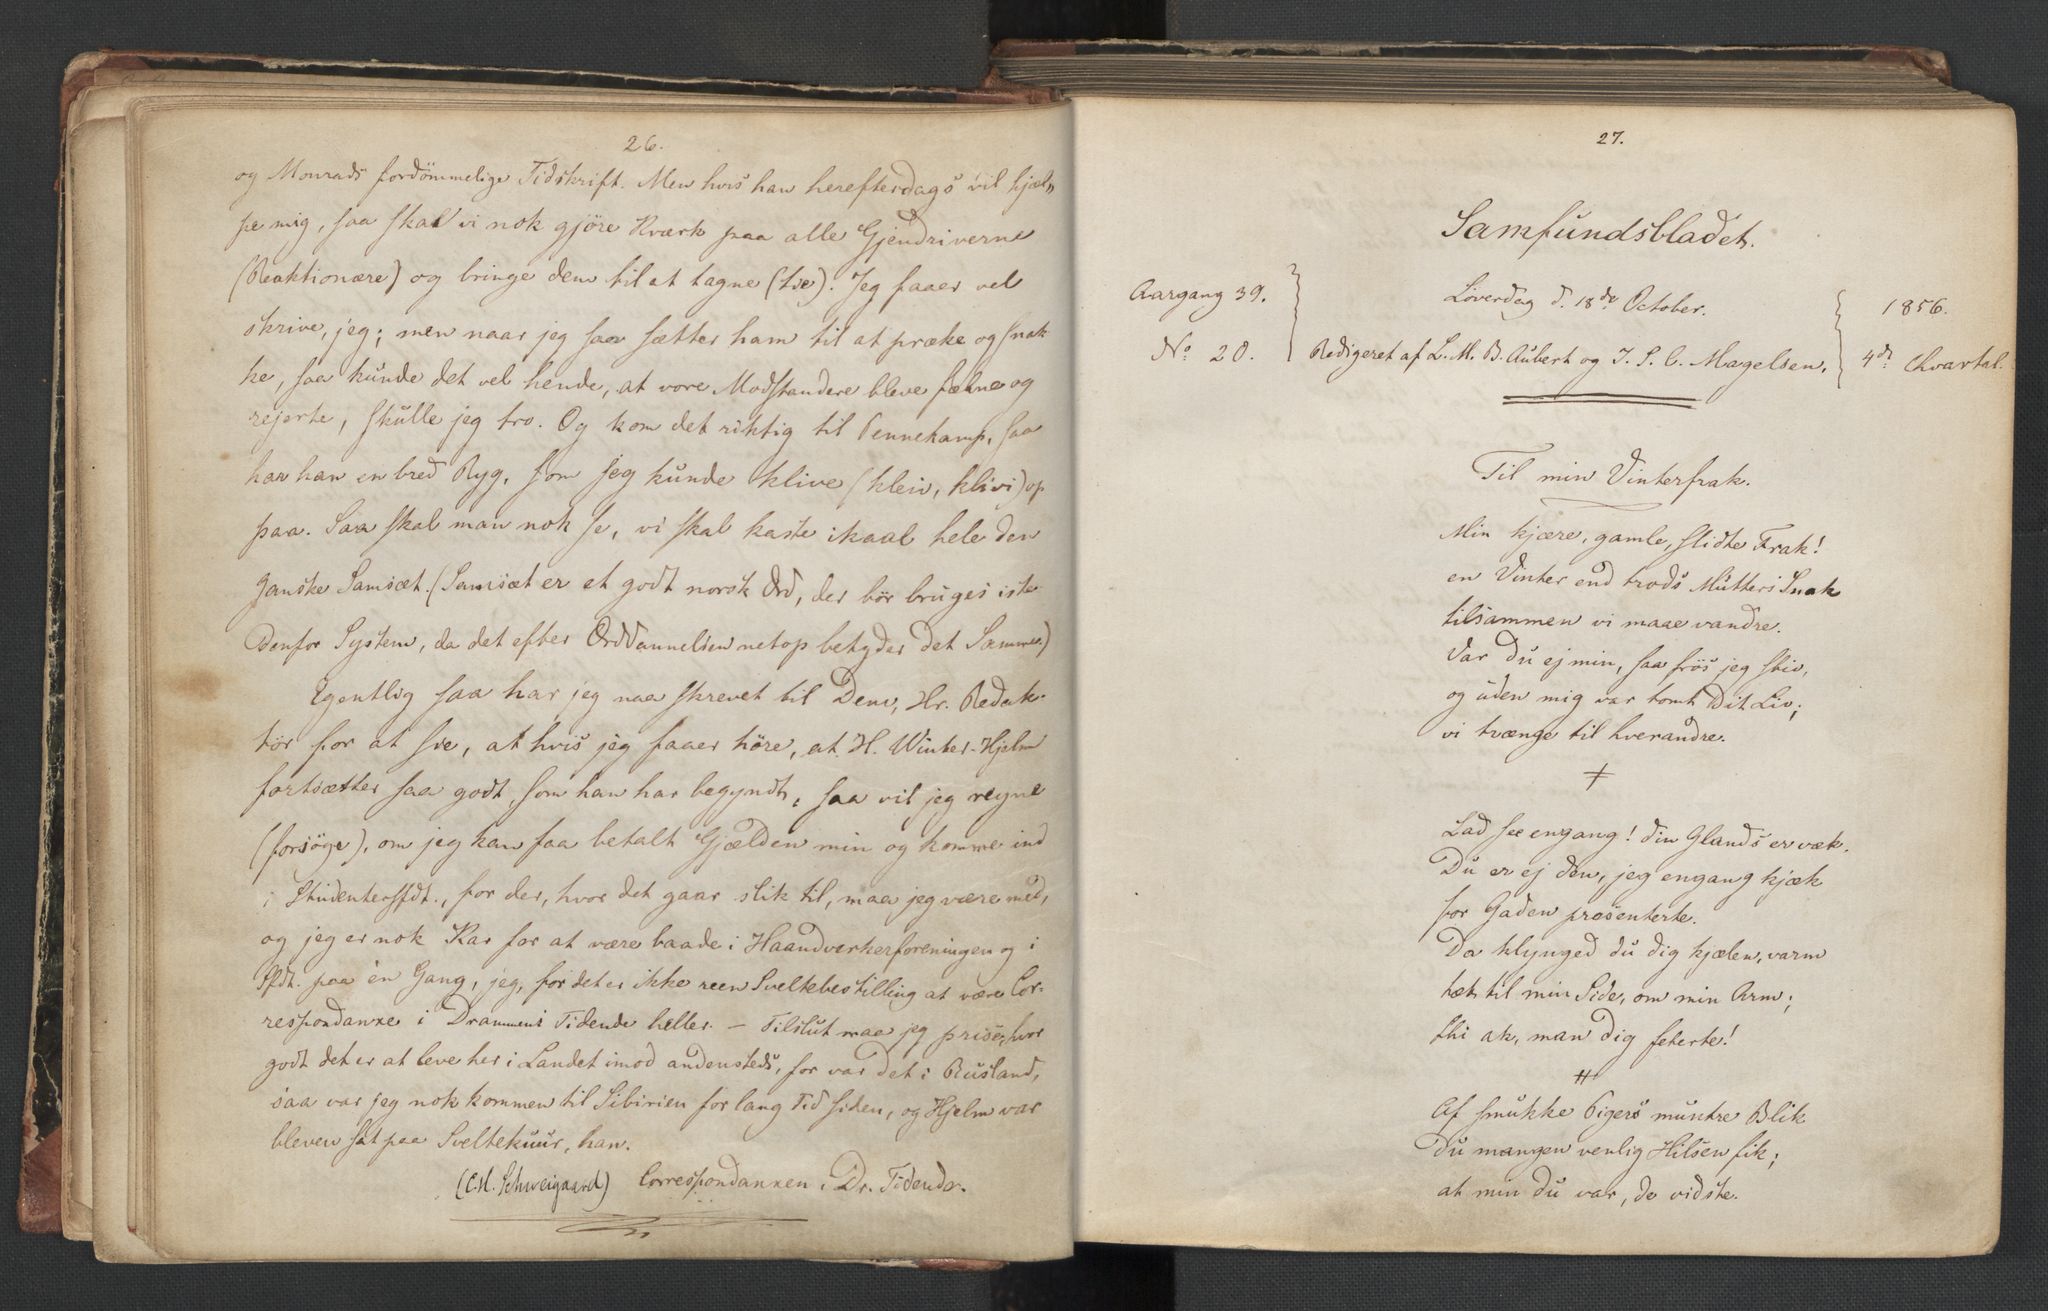 26.
og Monrads fordömmelige Tidskrift. Men hvis han herefterdags vil hjæl„
pe mig, saa skal vi nok gjöre Kværk paa alle Gjendriverne
(Reaktionære) og bringe dem til at tagne (tie). Jeg faaer vel
skrive, jeg; men naar jeg saa sætter ham til at præke og snak
ke, saa kunde det vel hende, at vore Modstandere bleve fælne og
rejerte, skulle jeg tro. Og kom det riktig til Pennekamp, saa
har han en bred Ryg, som jeg kunde klive (kleiv, klivi) op
paa. Saa skal man nok se, vi skal kaste ikaal hele den
ganske Samsæt. (Samsæt er et godt norsk Ord, der bör bruges iste
denfor System, da det efter Orddannelsen netop betyder det Samme)
Egentlig saa har jeg naa skrevet til Dem, Hr. Redak-
tör for at sie, at hvis jeg faaer höre, at H. Winter-Hjelm
fortsætter saa godt, som han har begyndt, saa vil jeg røyne
(forsöge), om jeg kan faa betalt Gjælden min og komme ind
i Studentersfdt., for der, hvor det gaar slik til, maa jeg være med,
og jeg er nok Kar for at være baade i Haandverkerforeningen og i
Sfdt. paa én Gang, jeg, for det er ikke reen Sveltebestilling at være Cor-
respondanxe i Drammens Tidende heller. – Tilslut maa jeg prise, hvor
godt det er at leve her i Landet imod andensteds, for var det i Rusland,
saa var jeg nok kommen til Sibirien for lang Tid siden, og Hjelm var
bleven sat paa Sveltekuur, han.
(C.H. Schweigaard) Correspondanxen i Dr. Tidende.
27.
Samfundsbladet.
Löverdag d. 18de October.
Aargang 39.
1856.
No. 20.
Redigeret af L. M. B. Aubert og J. S. C. Magelsen.
4de Qvartal.
Til min Vinterfrak.
Min kjære, gamle, slidte Frak!
en Vinter end trods Mutters Snak
tilsammen vi maae vandre.
Var du ej min, saa frös jeg stiv,
og uden mig var tomt Dit Liv;
vi trænge til hverandre.
Lad see engang! din Glands er væk.
Du er ej den, jeg engang kjæk
for Gaden præsenterte.
Da klynged du dig kjælen, varm
tæt til min Side, om min Arm;
thi ak, man dig feterte!
Af smukke Pigers muntre Blik
du mangen venlig Hilsen fik;
at min du var, de vidste.